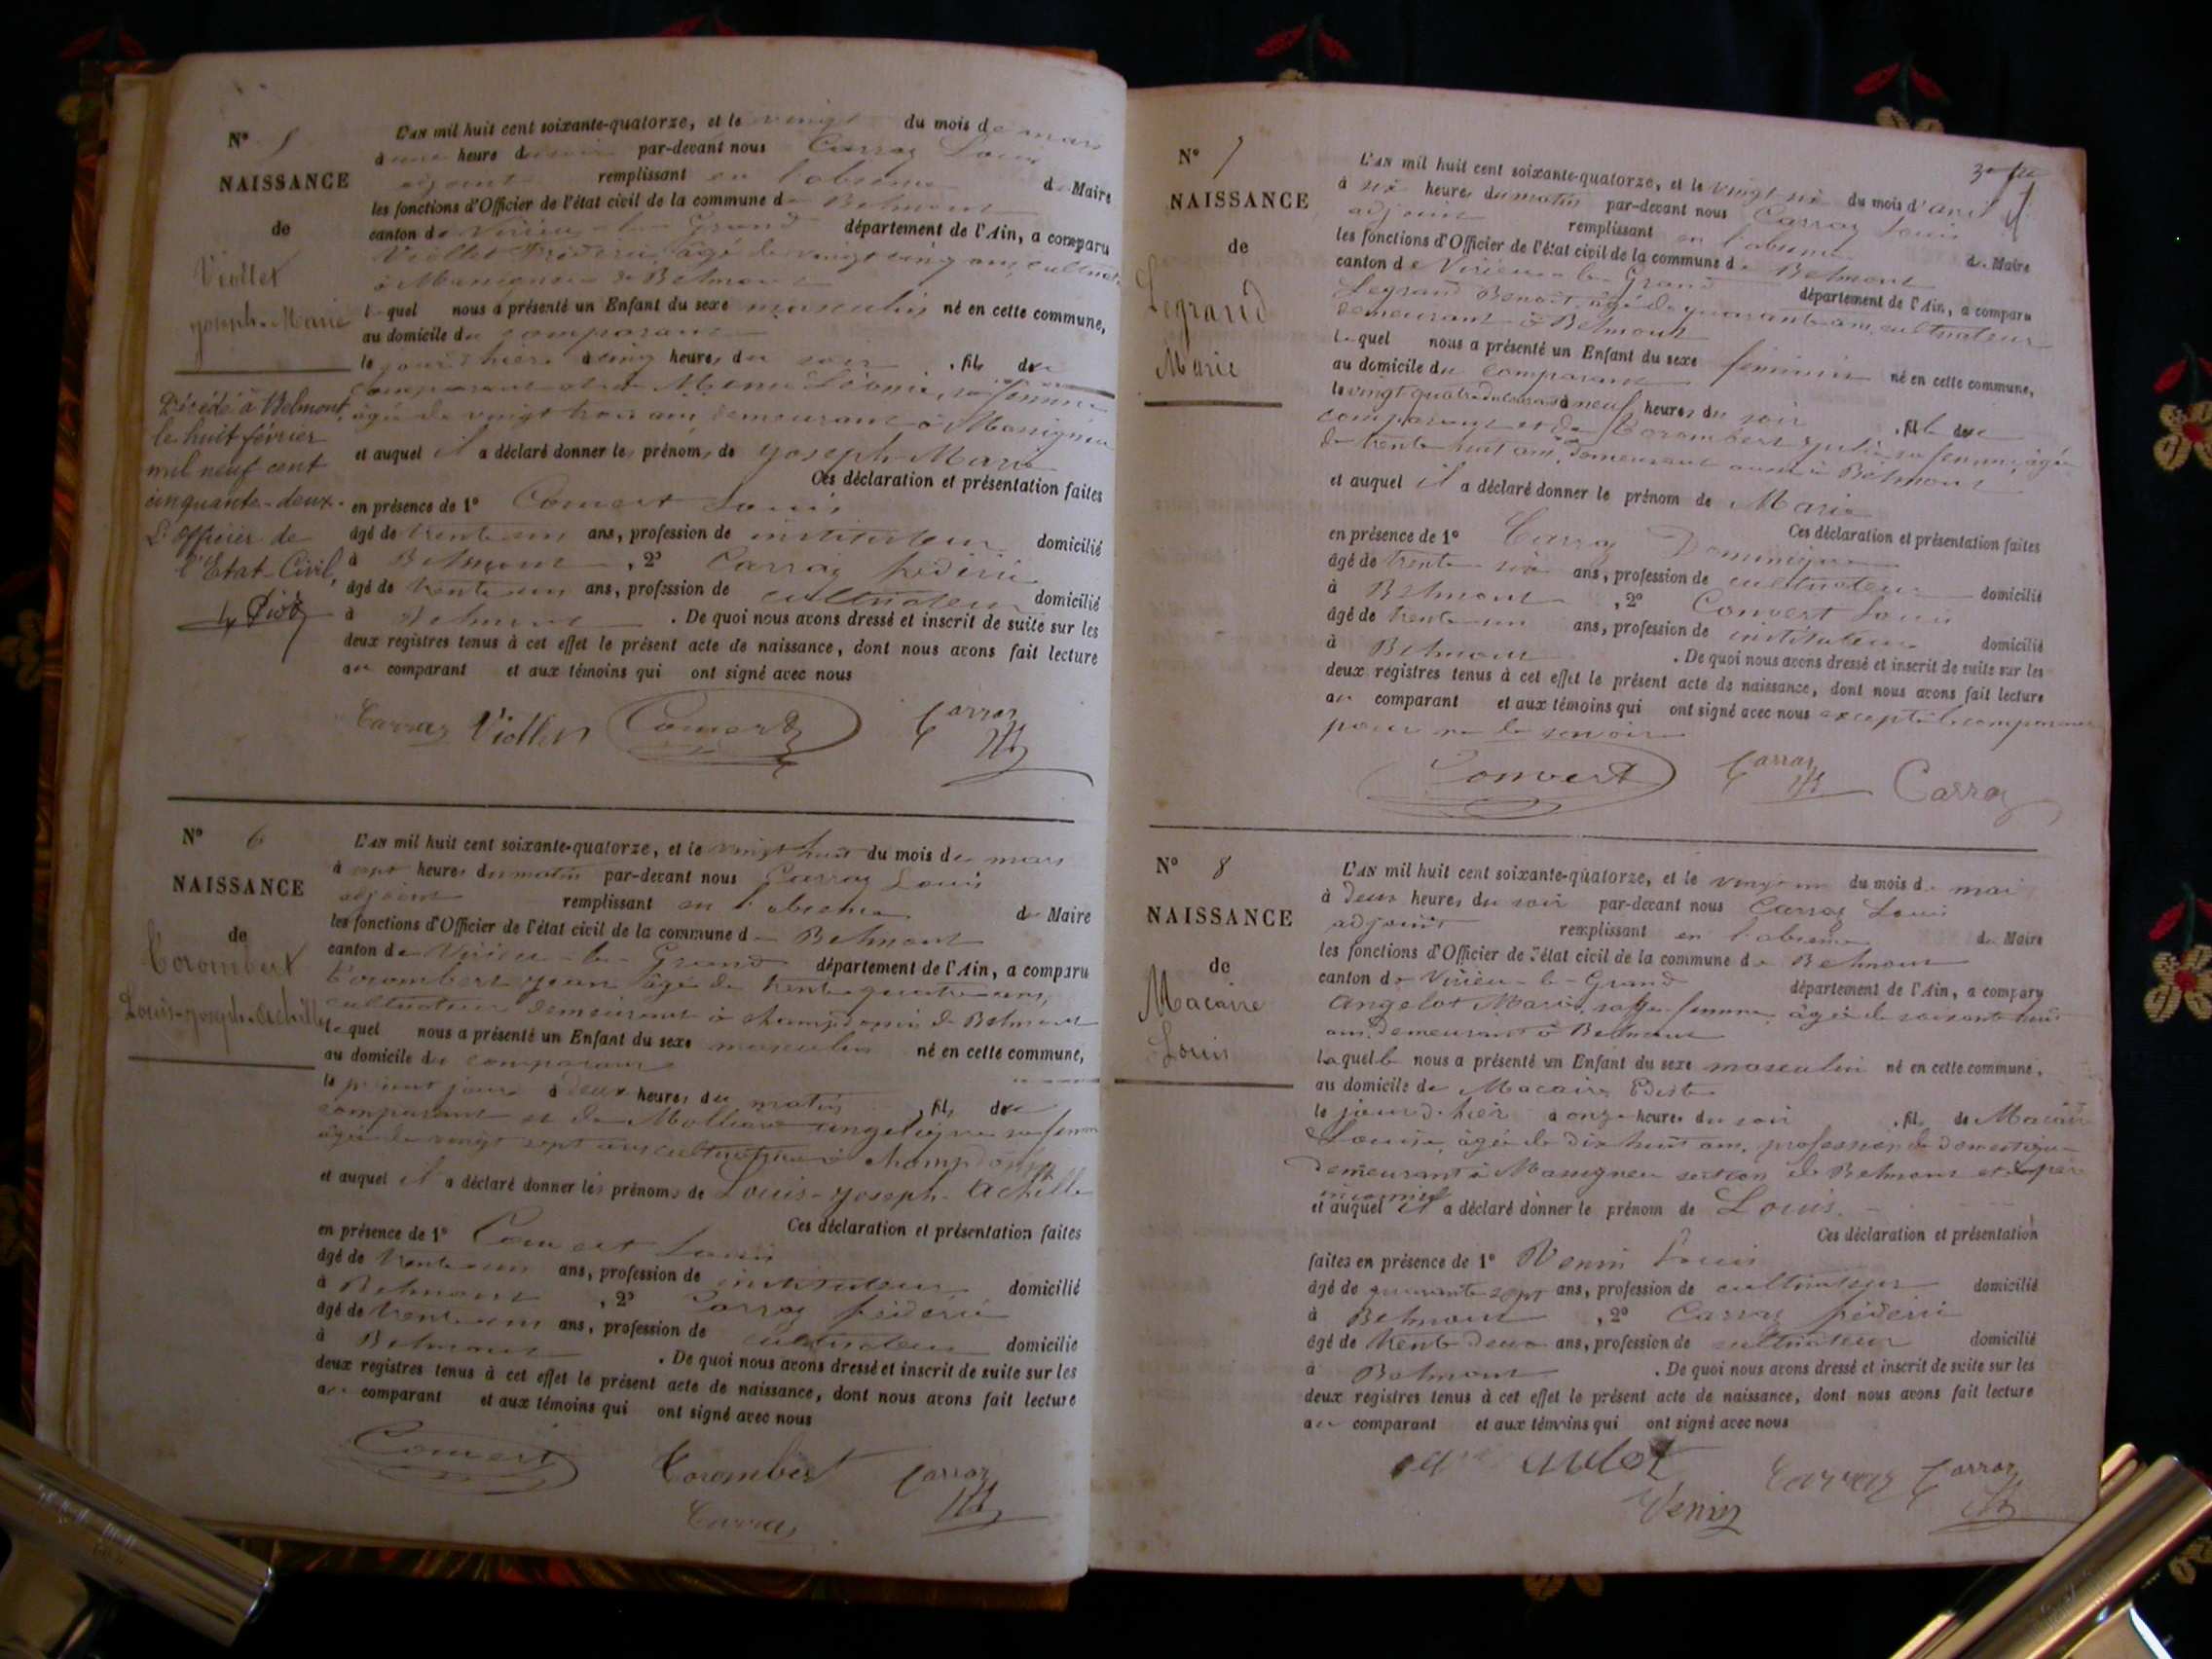 N° 5
NAISSANCE
de
Viollet
Joseph-Marie
Décédé à Belmont,
le huit février
mil neuf cent
cinquante-deux.
L'Officier de
l'Etat-Civil,
L'AN mil huit cent soixante-quatorze, et le vingt du mois de mars
à une heure du soir par-devant nous Carraz Louis
adjoint remplissant en l'absence de Maire
les fonctions d'Officier de l'état civil de la commune de Belmont
canton de Virieu-le-Grand département de l'Ain, a comparu
Viollet Frédéric, âgé de vingt cinq ans, cultivateur
à Massignieu de Belmont
lequel nous a présenté un Enfant du sexe masculin né en cette commune,
au domicile du comparant
le jour d'hier à cinq heures du soir , fils du
comparant et de Léonie, sa femme
âgée de vingt trois ans, demeurant à Massignieu
et auquel il a déclaré donner les prénoms de Joseph-Marie
Ces déclaration et présentation faites
en présence de 1° Convert Louis
âgé de trente un ans, profession de instituteur domicilié
à Belmont , 2° Carraz frédéric
âgé de trente un ans, profession de cultivateur domicilié
à Belmont . De quoi nous avons dressé et inscrit de suite sur les
deux registres tenus à cet effet le présent acte de naissance, dont nous avons fait lecture
au comparant et aux témoins qui ont signé avec nous
Carraz Viollet Convert Carraz
N° 6
NAISSANCE
de
Corombert
Louis-Joseph-Achille
L'AN mil huit cent soixante-quatorze, et le vingt huit du mois de mars
à sept heures du matin par-devant nous Carraz Louis
adjoint remplissant en l'absence de Maire
les fonctions d'Officier de l'état civil de la commune de Belmont
canton de Virieu-le-Grand département de l'Ain, a comparu
Corombert Jean âgé de trente quatre ans,
cultivateur demeurant à de Belmont
lequel nous a présenté un Enfant du sexe masculin né en cette commune,
au domicile du comparant
le présent jour à deux heures du matin , fils du
comparant et de angélique sa femme
âgée de vingt sept ans cultivatrice à
et auquel il a déclaré donner les prénoms de Louis-Joseph-Achille
Ces déclaration et présentation faites
en présence de 1° Convert Louis
âgé de trente un ans, profession de instituteur domicilié
à Belmont , 2° Carraz frédéric
âgé de trente un ans, profession de cultivateur domicilié
à Belmont . De quoi nous avons dressé et inscrit de suite sur les
deux registres tenus à cet effet le présent acte de naissance, dont nous avons fait lecture
au comparant et aux témoins qui ont signé avec nous
Convert Corombert Carraz
Carraz
N° 7
NAISSANCE
de
Legrand
Marie
L'AN mil huit cent soixante-quatorze, et le vingt six du mois d'avril
à six heures du matin par-devant nous Carraz Louis
adjoint remplissant en l'absence de Maire
les fonctions d'Officier de l'état civil de la commune de Belmont
canton de Virieu-le-Grand département de l'Ain, a comparu
Legrand Benoit, âgé de quarante ans, cultivateur
demeurant à Belmont
lequel nous a présenté un Enfant du sexe féminin né en cette commune,
au domicile du comparant
le vingt quatre à neuf heures du soir , fille du
comparant et de Corombert Julie sa femme, âgée
de trente huit ans, demeurant aussi à Belmont
et auquel il a déclaré donner le prénom de Marie
Ces déclaration et présentation faites
en présence de 1° Carraz Dominique
âgé de trente six ans, profession de cultivateur domicilié
à Belmont , 2° Convert Louis
âgé de trente un ans, profession de instituteur domicilié
à Belmont . De quoi nous avons dressé et inscrit de suite sur les
deux registres tenus à cet effet le présent acte de naissance, dont nous avons fait lecture
au comparant et aux témoins qui ont signé avec nous excepté le comparant
pour ne le savoir
Convert Carraz Carraz
N° 8
NAISSANCE
de
Macaire
Louis
L'AN mil huit cent soixante-quatorze, et le vingt un du mois de mai
à deux heures du soir par-devant nous Carraz Louis
adjoint remplissant en l'absence de Maire
les fonctions d'Officier de l'état civil de la commune de Belmont
canton de Virieu-le-Grand département de l'Ain, a comparu
Angelot Marie, sage femme, âgée de soixante huit
ans, demeurant à Belmont
laquelle nous a présenté un Enfant du sexe masculin né en cette commune,
au domicile de Macaire
le jour d'hier à onze heures du soir , fils de Macaire
Louise, âgée de dix huit ans, profession de domestique
demeurant à Massignieu section de Belmont et de père
inconnu
et auquel il a déclaré donner le prénom de Louis
Ces déclaration et présentation
faites en présence de 1° Venin Louis
âgé de quarante sept ans, profession de cultivateur domicilié
à Belmont , 2° Carraz frédéric
âgé de trente deux ans, profession de cultivateur domicilié
à Belmont . De quoi nous avons dressé et inscrit de suite sur les
deux registres tenus à cet effet le présent acte de naissance, dont nous avons fait lecture
au comparant et aux témoins qui ont signé avec nous
Carraz Carraz
Venin